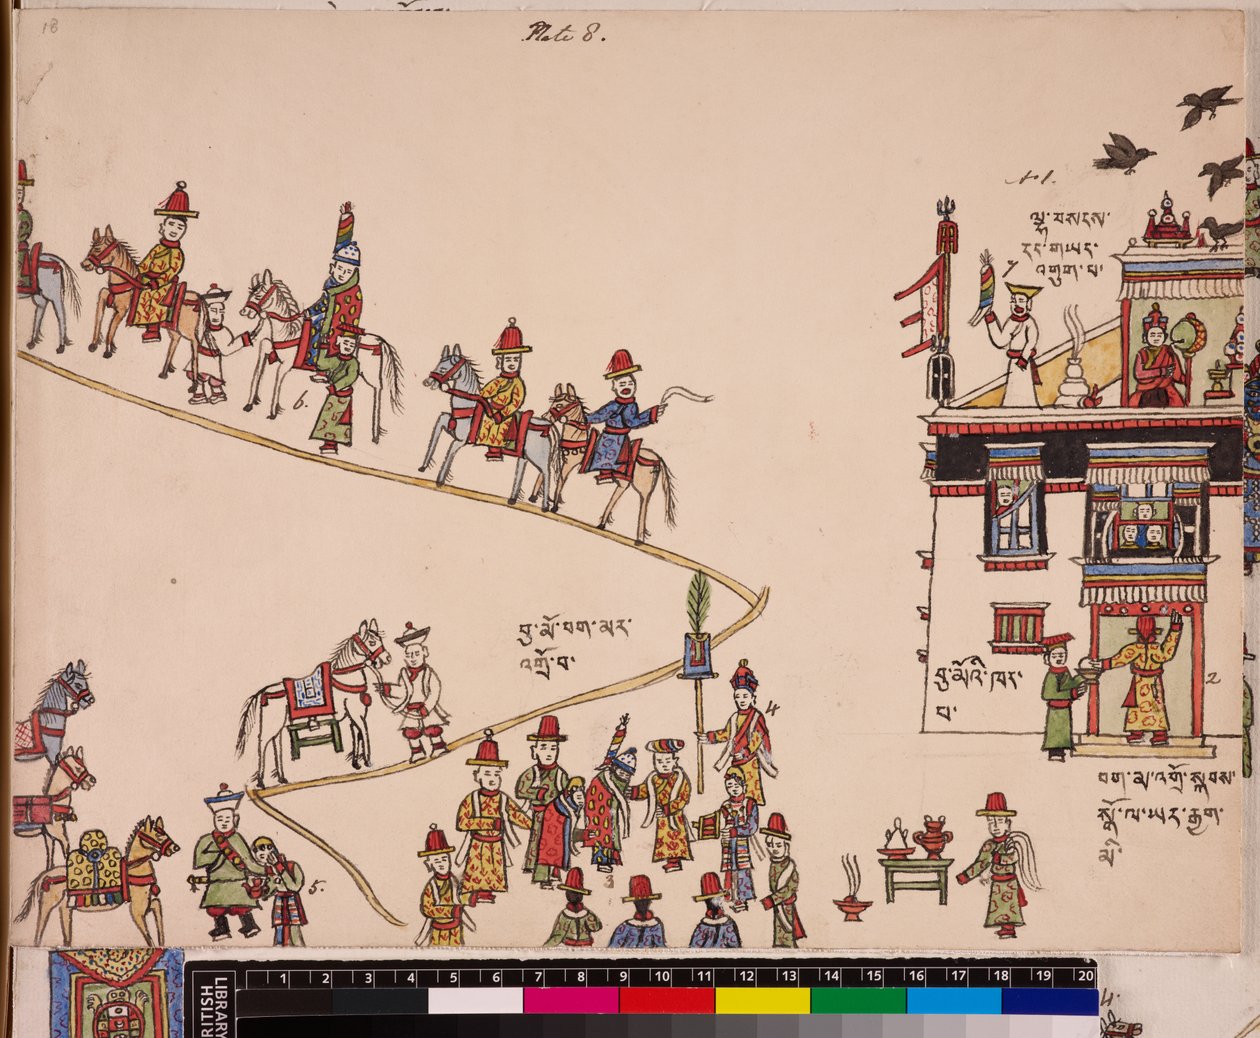 18
Plate 8.
+1.
ལྷ་བསངས་
དང་གཡང་
འགུག་པ་
7
6.
བུ་མོ་བག་མར་
འགྲོ་བ་
4
2
བུ་མོའི་ཁང་
པ་
བག་མ་འགྲོ་སྐབས་
སྒོ་ལ་ཡར་རྒྱག་
མ་
3
5.
1 2 3 4 5 6 7 8 9 10 11 12 13 14 15 16 17 18 19 20
BRITISH
LIBRARY
4.